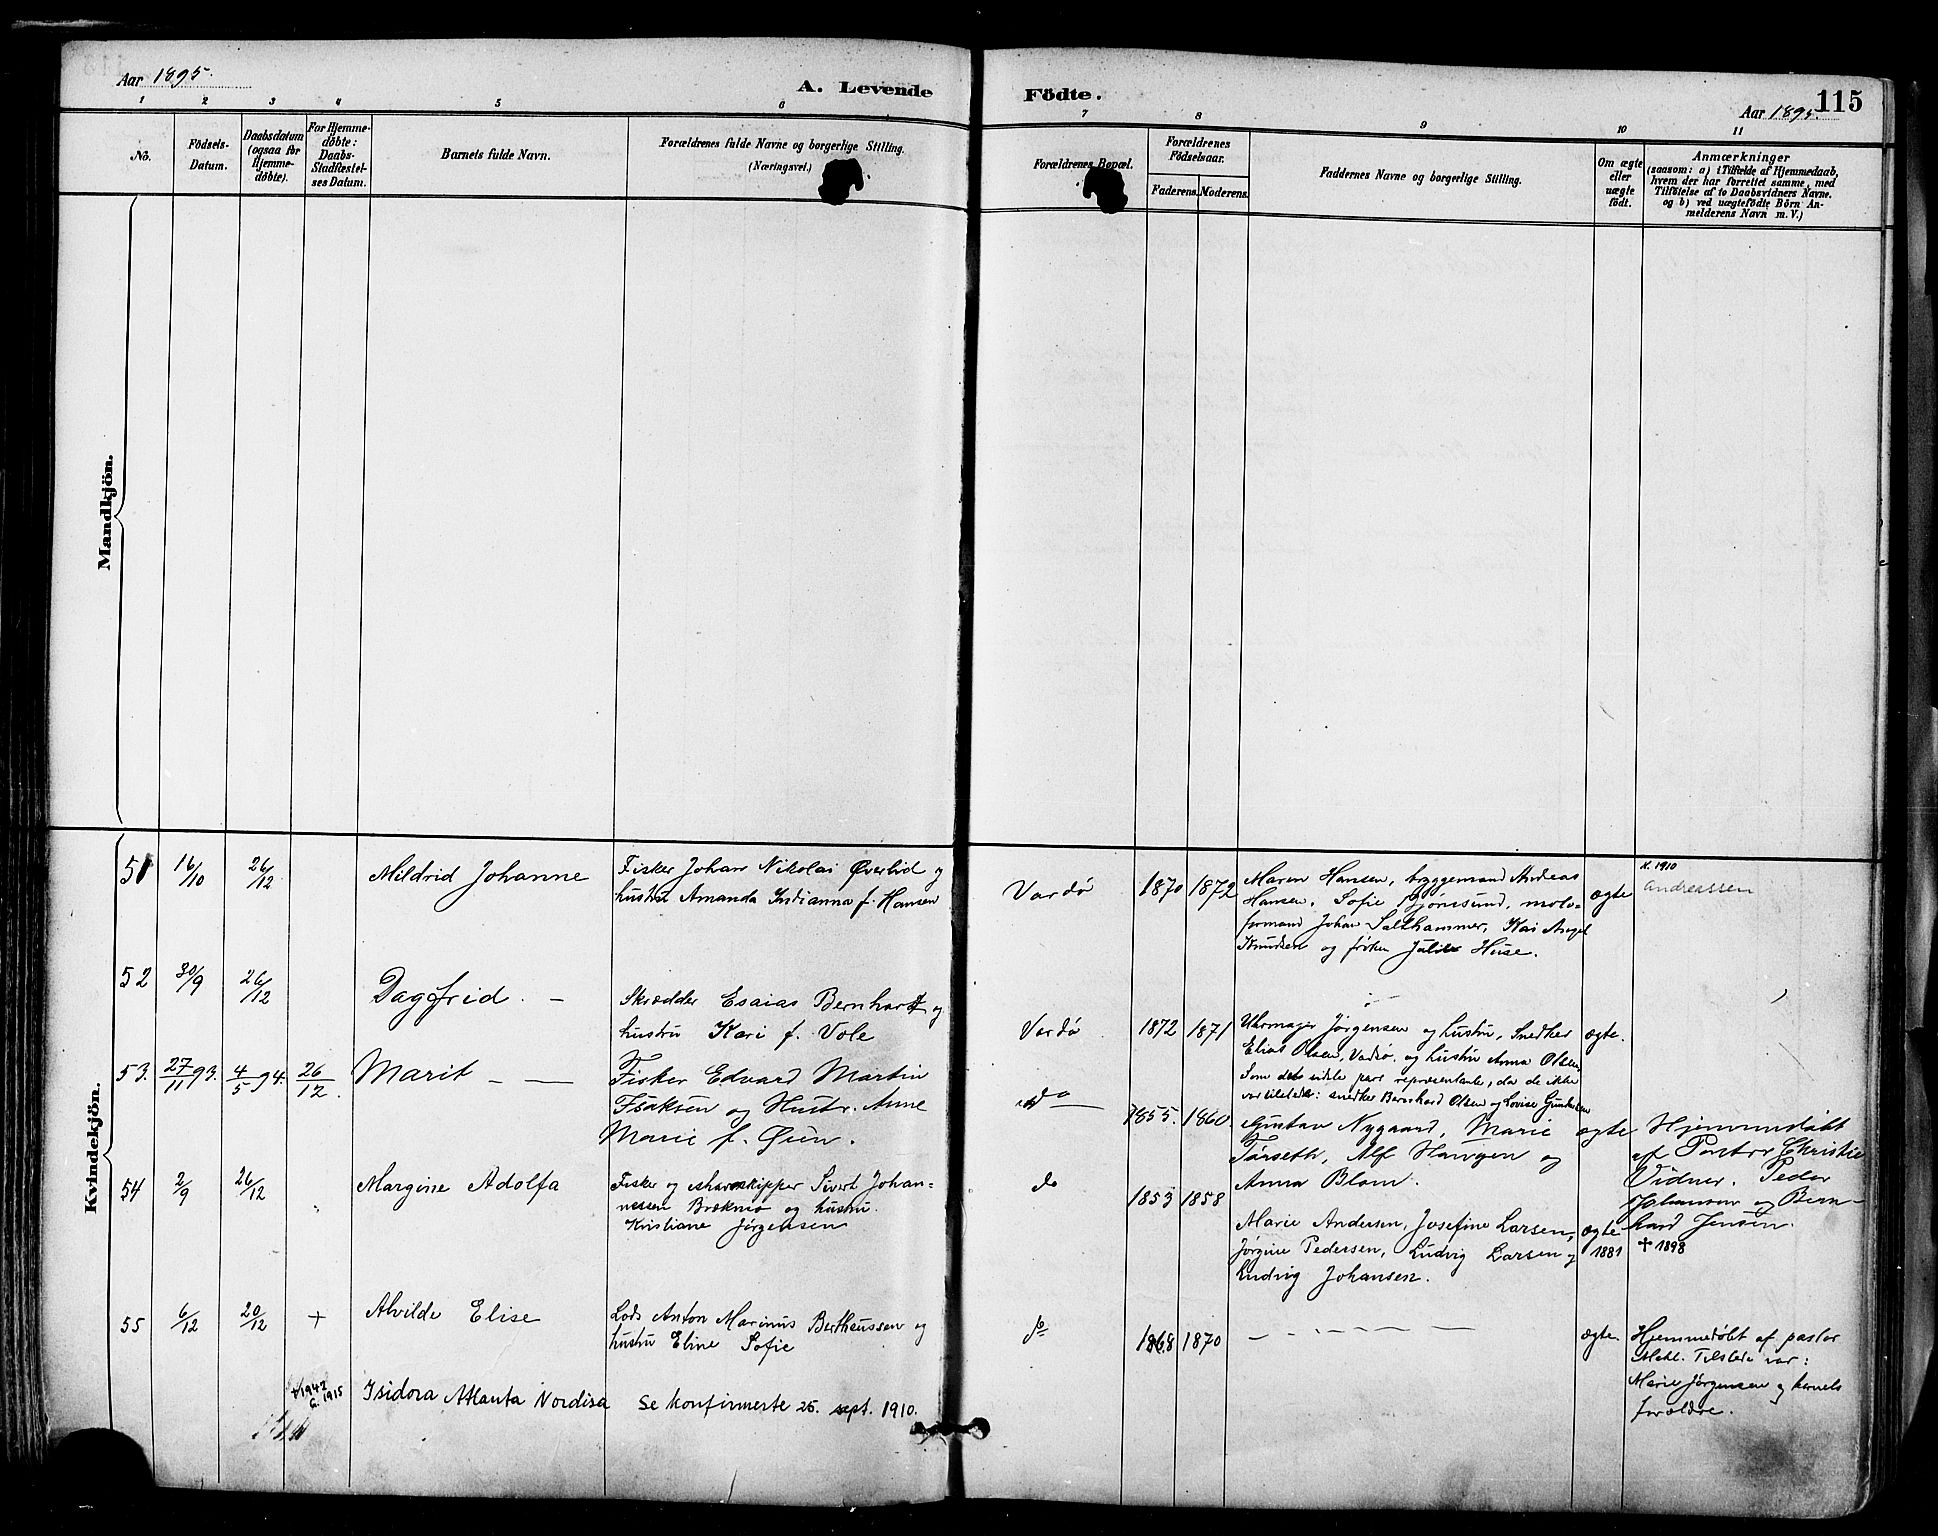 Aar 1895.
A. Levende Födte.
Aar 1895.
115
1 2 3 4 5 6 7 8 9 10 11
No.
Födsels-
Datum.
Daabsdatum
(ogsaa for
Hjemme-
döbte).
For Hjemme-
döbte:
Daabs-
Stadfæstel-
ses Datum.
Barnets fulde Navn.
Forældrenes fulde Navne og borgerlige Stilling.
(Næringsvei.)
Forældrenes Bopæl.
Forældrenes
Födselsaar.
Faderens. Moderens.
Faddernes Navne og borgerlige Stilling.
Om ægte
eller
uægte
födt.
Anmærkninger
(saasom: a) i Tilfælde af Hjemmedaab,
hvem der har forrettet samme, med
Tilföielse af to Daabsvidners Navne.
og b) ved uægtefödte Börn An-
melderens Navn m. V.)
Mandkjön.
Kvindekjön.
51 16/10 26/12 Mildrid Johanne
Fisker Johan Nikolai Øverlid og
hustru Amanda Indianna f. Hansen
Vardø 1870 1872
Maren Hansen, bryggemand Andreas
Hansen, Sofie Bjørnsund, molo-
formand Johan Salthammer, Kai Angel
Knudsen og frøken Julie Huse.
ægte
K. 1910
Andreassen
52 30/9 26/12 Dagfrid. —
Skrædder Esaias Bernhardt og
hustru Kari f. Vole
Vardø 1872 1871
Uhrmager Jørgensen og hustru, Snedker
Elias Olsen, Vadsø, og hustru Anna Olsen
Som det sidste pars repræsentanter, da de ikke
var tilstede: snedker Bernhard Olsen og Lovise Gundersen
ægte.
53. 27/11 93. 4/5 94. 26/12. Marit — —
Fisker Edvard Martin
Isaksen og Hustr. Anne
Marie f. Øien.
do 1855. 1860
Gustav Nygaard, Marie
Tørseth, Alf Haugen og
Anna Blom.
ægte
Hjemmedøbt
af Pastor Christie
Vidner. Peder
Johansen og Bern-
hard Jensen.
54 2/9 26/12 Margine Adolfa
Fisker og skipper Sivert Johan-
nessen Brækmo og hustru
Kristiane Jørgensen
do 1853 1858
Marie Andersen, Josefine Larsen,
Jørgine Pedersen, Ludvig Larsen og
Ludvig Johansen.
ægte
1881
† 1898
55 6/12 20/12 + Alvilde Elise
Lods Anton Marinus Bertheussen og
hustru Eline Sofie
do 1868 1870
— — — — —
ægte.
Hjemmedøbt af pastor
Mehl. Tilstede var:
Marie Jørgensen og barnets
forældre.
† 1942
G. 1915
Isidora Atlanta Nordisa
Se konfirmerte 25. sept. 1910.